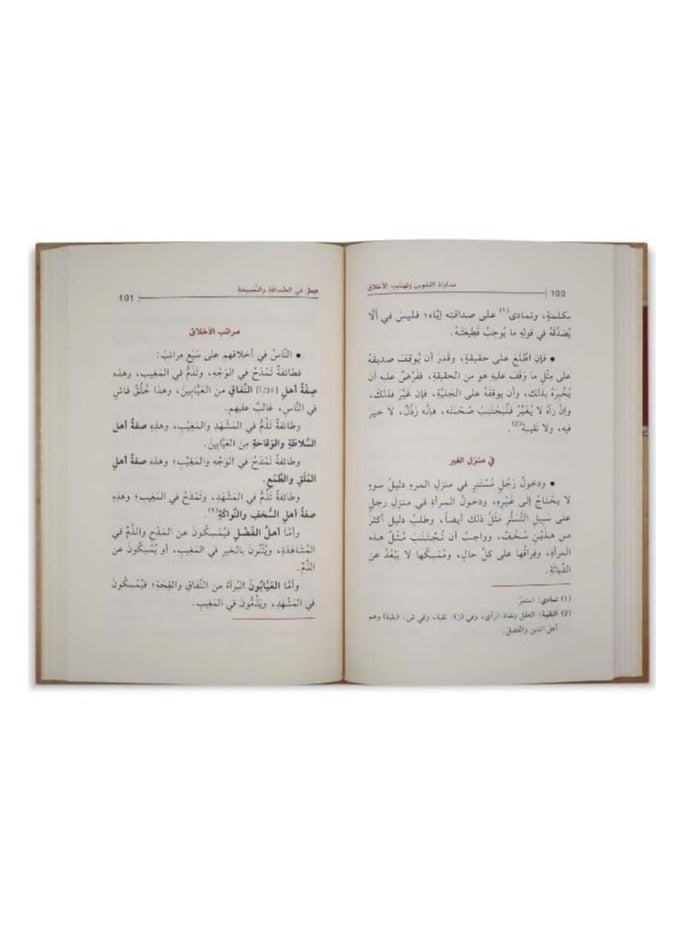 100
مداواة النفوس وتهذيب الأخلاق
بكلمةٍ، وتمادى(١) على صداقته إيَّاه؛ فليس في ألَّا
يُصَدِّقَهُ في قوله ما يُوجبُ قَطِيعَتَهُ.
• فإن اطَّلَعَ على حقيقةٍ، وقَدَرَ أن يُوقِفَ صديقَه
على مِثْلِ ما وَقَفَ عليه هو من الحقيقةِ، ففَرْضٌ عليه أن
يُخْبِرَهُ بذلك، وأن يوقِفَهُ على الجَليَّةِ، فإن غَيَّرَ فذلك،
وإنْ رَآهُ لا يُغَيِّرُ فَلْيَجْتَنِبْ صُحْبَتَه، فإنَّه رَذْلٌ، لا خير
فيه، ولا نَقِيبةَ(٢).
في منزل الغير
• ودخولُ رَجُلٍ مُتَسَتِّرٍ في منزلِ المرء دليلُ سوءٍ
لا يحتاجُ إلى غيْرِهِ، ودخول المرأةِ في منزلِ رجلٍ
على سبيلِ التَّستُّرِ مثْلُ ذلك أيضاً، وطلبُ دليلٍ أكثرَ
من هذين سُخْفٌ، وواجبٌ أن تُجتَنَبَ مثْلُ هذه
المرأةِ، وفِراقُها على كلِّ حالٍ، ومُمْسِكُها لا يَبْعُدُ عن
الدِّياثةِ.
(1) تمادى: استمرّ.
(2) النقيبة: العقل ونفاذ الرأي، وفي (ز): نقية، وفي ش: (بقية) وهم
أهل الدين والفضل.
فصل في الصَّداقةِ والنَّصِيحَةِ
101
مراتب الأخلاق
• النَّاسُ في أخلاقهم على سَبْعِ مراتبَ:
فطائفةٌ تَمْدَحُ في الوَجْهِ، وتَذُمُّ في المَغِيبِ، وهذه
صِفَةُ أهلِ [31/أ] النِّفاقِ من العَيَّابِينَ، وهذا خُلُقٌ فاشٍ
في النَّاسِ، غالبٌ عليهم.
وطائفةٌ تَذُمُّ في المَشْهَدِ والمَغِيبِ، وهذه صفةُ أهل
السَّلاطَةِ والوَقَاحَةِ مِنَ العَيَّابِينَ.
وطائفةٌ تَمْدَحُ في الوَجْهِ والمَغِيبِ؛ وهذه صِفةُ أهلِ
المَلَقِ والطَّمَعِ.
وطائفةٌ تَذُمُّ في المَشَاهِدِ، وتَمْدَحُ في المَغِيبِ؛ وهذهِ
صفةُ أهلِ السُّخْفِ والنَّواكَةِ.
وأمَّا أهلُ الفَضْلِ فيُمْسِكُونَ عن المَدْحِ والذَّمِّ في
المُشَاهَدَةِ، ويُثْنُونَ بالخيرِ في المَغِيبِ، أو يُمْسِكُونَ عن
الذَّمِّ.
وأمَّا العَيَّابُونَ البُرَآءُ من النِّفاقِ والقِحَةِ؛ فيُمْسِكُونَ
في المَشْهَدِ، ويَذُمُّونَ في المَغِيبِ.